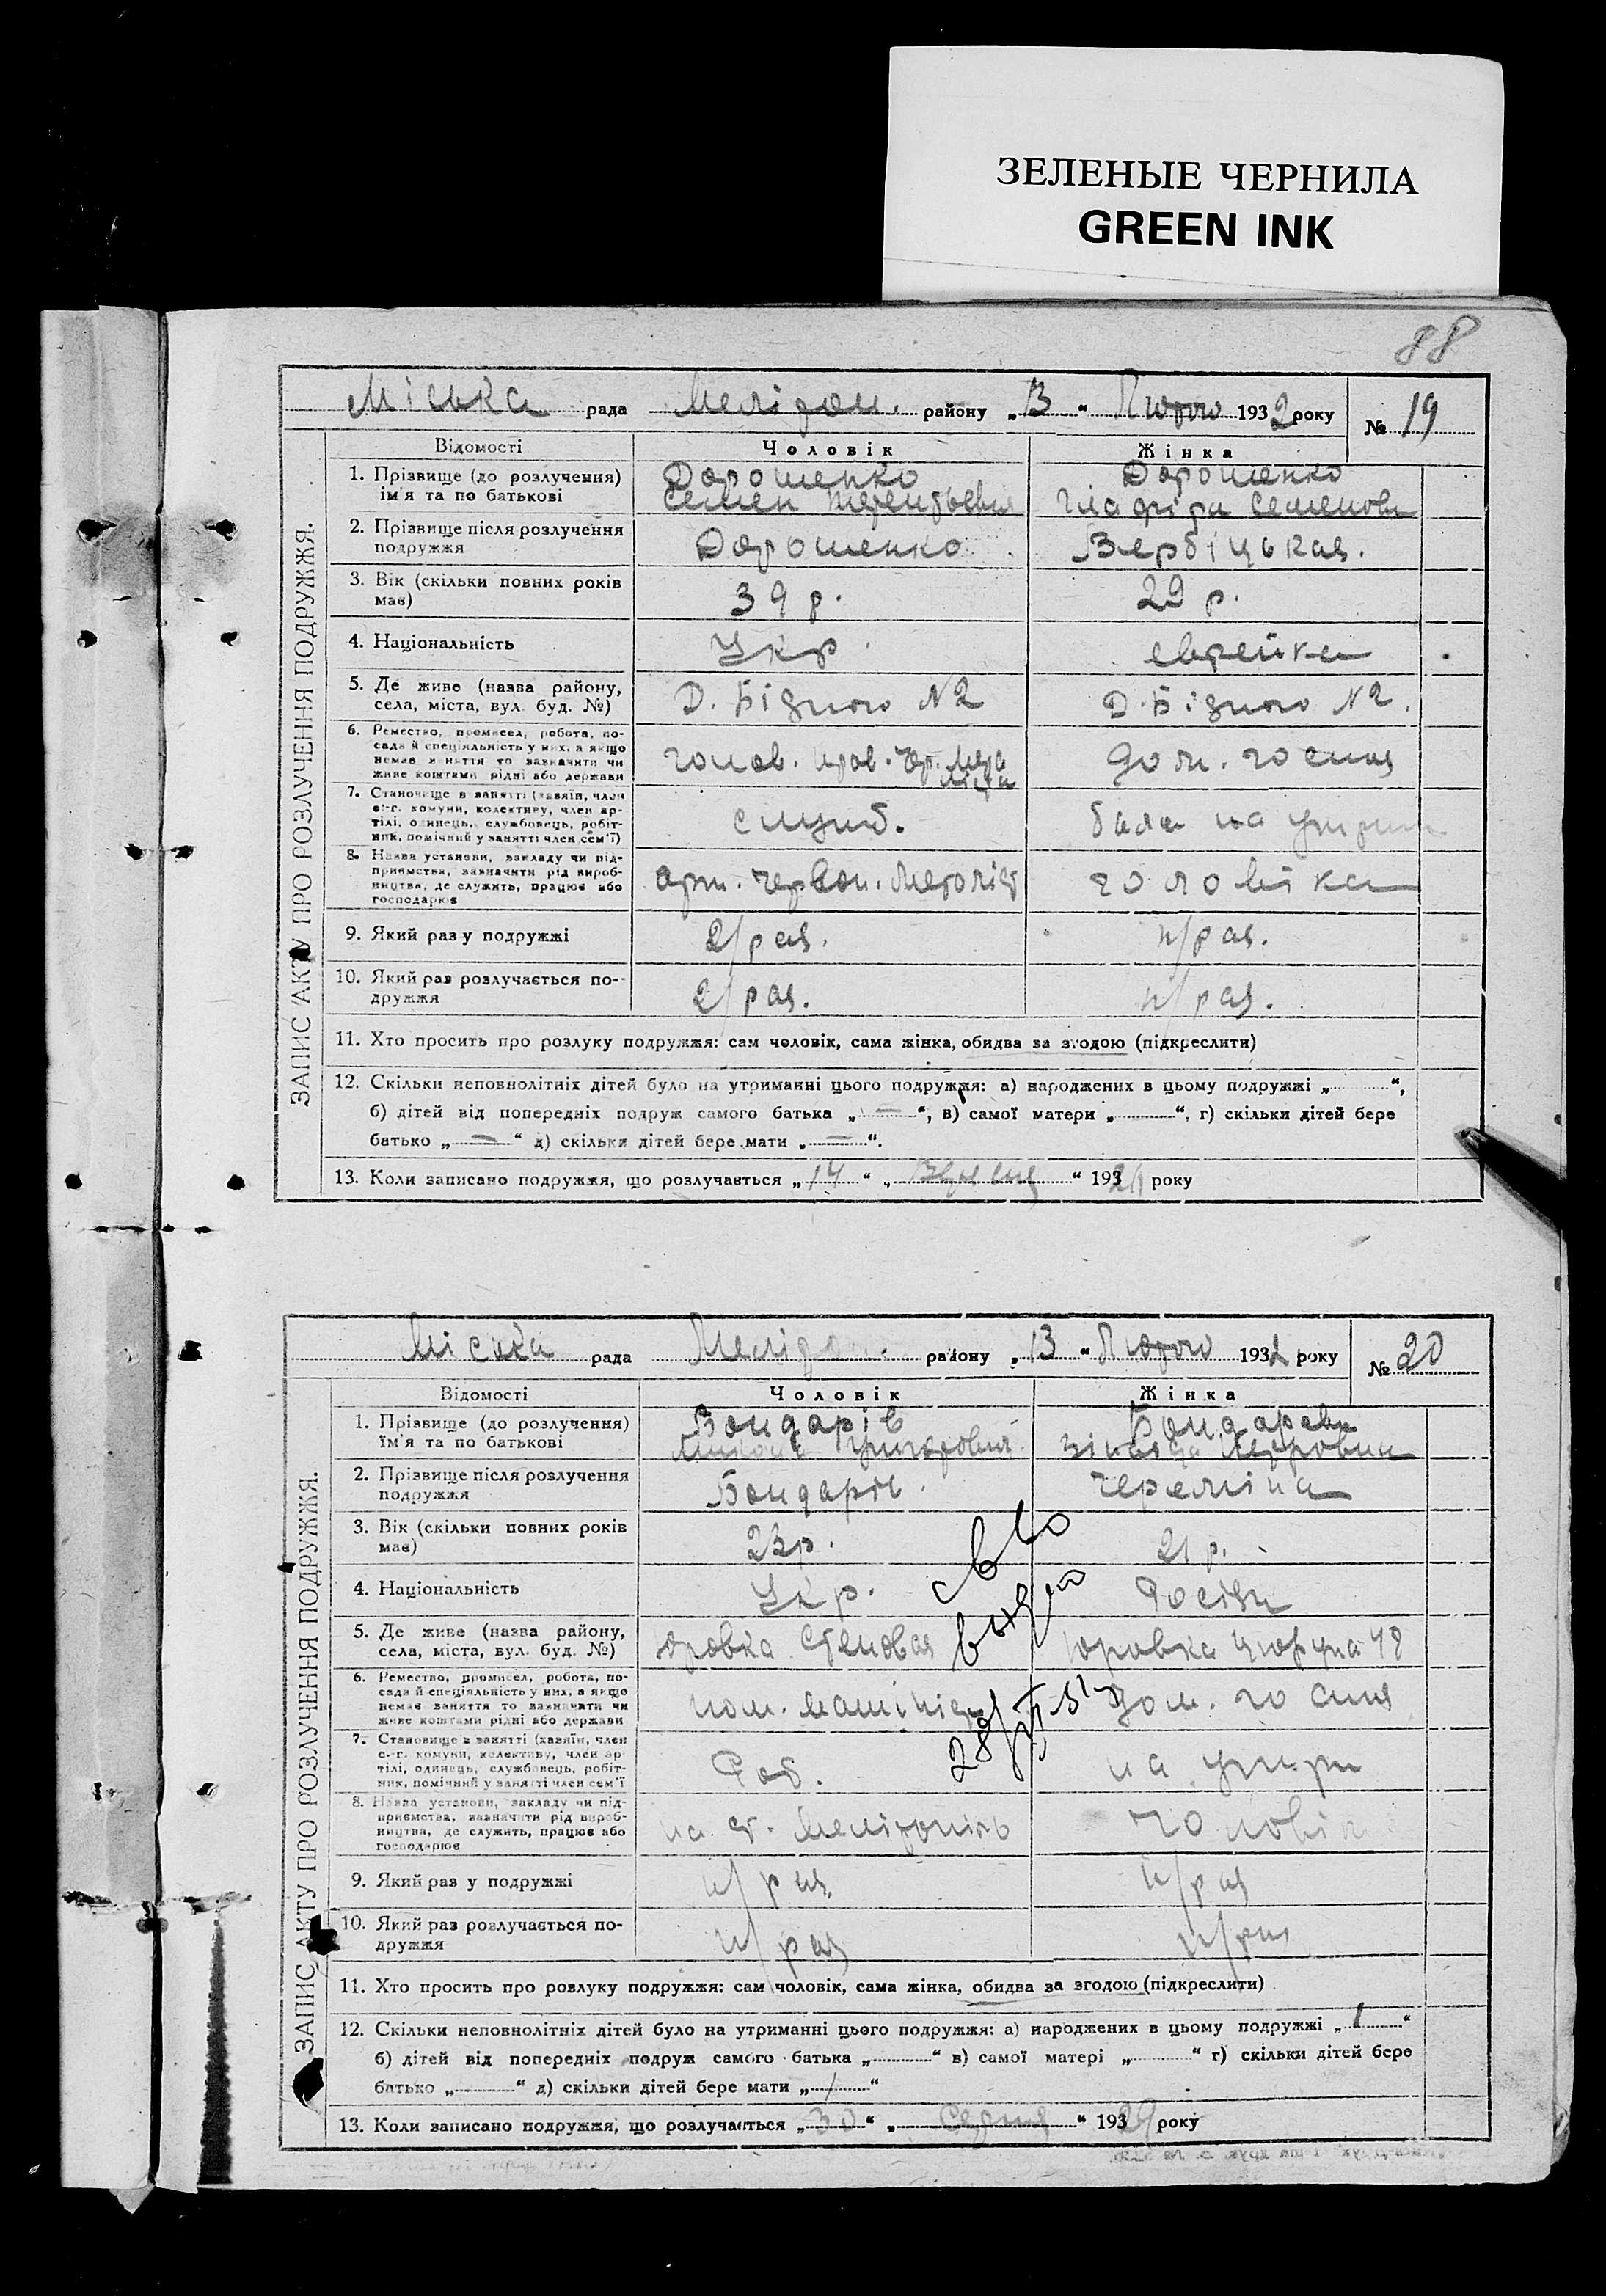 ЗЕЛЕНЫЕ ЧЕРНИЛА
GREEN INK
88
ЗАПИС АКТУ ПРО РОЗЛУЧЕННЯ ПОДРУЖЖЯ.
Міська рада Меліт. району „13“ Лютого 1932 року № 19
Відомості Чоловік Жінка
1. Прізвище (до розлучення) ім'я та по батькові Дорошенко Семен Терентьевич Дорошенко Гла фіра Семенов
2. Прізвище після розлучення подружжя Дорошенко Вербіцькая.
3. Вік (скільки повних років має) 39 р. 29 р.
4. Національність Укр. еврейка
5. Де живе (назва району, села, міста, вул. буд. №) Д. Бідного №2 Д. Бідного №2.
6. Ремество, промисел, робота, посада й спеціяльність у них, а якщо немає заняття то зазначити чи живе коштами рідні або держави голов. прав. дом. госпа
7. Становище в занятті (хазяїн, член с.-г. комуни, колективу, член артілі, одинець, службовець, робітник, помічний у занятті член сем'ї) служб. була на утрим
8. Назва установи, закладу чи підприємства, зазначити рід виробництва, де служить, працює або господарює арт. Червон. Металіст чоловіка
9. Який раз у подружжі 2/раз. п/раз.
10. Який раз розлучається подружжя 2/раз. п/раз.
11. Хто просить про розлуку подружжя: сам чоловік, сама жінка, обидва за згодою (підкреслити)
12. Скільки неповнолітніх дітей було на утриманні цього подружжя: а) народжених в цьому подружжі „ “,
б) дітей від попередніх подруж самого батька „—“, в) самої матери „ “, г) скільки дітей бере
батько „—“ д) скільки дітей бере мати „—“.
13. Коли записано подружжя, що розлучається „14“ „ “ 193 року
ЗАПИС АКТУ ПРО РОЗЛУЧЕННЯ ПОДРУЖЖЯ.
Міська рада Меліт. району „13“ Лютого 1932 року № 20
Відомості Чоловік Жінка
1. Прізвище (до розлучення) їм'я та по батькові Бондарів Григорович Бондарева Зінаїда Петровна
2. Прізвище після розлучення подружжя Бондарів. Череміна
3. Вік (скільки повних років має) 23р. 21 р.
4. Національність Укр. Росіян
5. Де живе (назва району, села, міста, вул. буд. №) Юровка Степовая Юровка 48
6. Ремество, промисел, робота, посада й спеціяльність у них, а якщо немає заняття то зазначати чи живе коштами рідні або держави пом. машініста дом. госпа
7. Становище в занятті (хазяїн, член с.-г. комуни, колективу, член артілі, одинець, службовець, робітник, помічний у занятті член сем'ї Роб. на утрим
8. Назва установи, закладу чи підприємства, зазначити рід виробництва, де служить, працює або господарює на ст. Мелітопіль чоловік
св во
выдан
9. Який раз у подружжі п/раз. п/раз
10. Який раз розлучається подружжя п/раз п/раз
11. Хто просить про розлуку подружжя: сам чоловік, сама жінка, обидва за згодою (підкреслити)
12. Скільки неповнолітніх дітей було на утриманні цього подружжя: а) народжених в цьому подружжі „1“
б) дітей від попередніх подруж самого батька „ “ в) самої матері „ “ г) скільки дітей бере
батько „ “ д) скільки дітей бере мати „1“
13. Коли записано подружжя, що розлучається „30“ „Серпня“ 19329 року